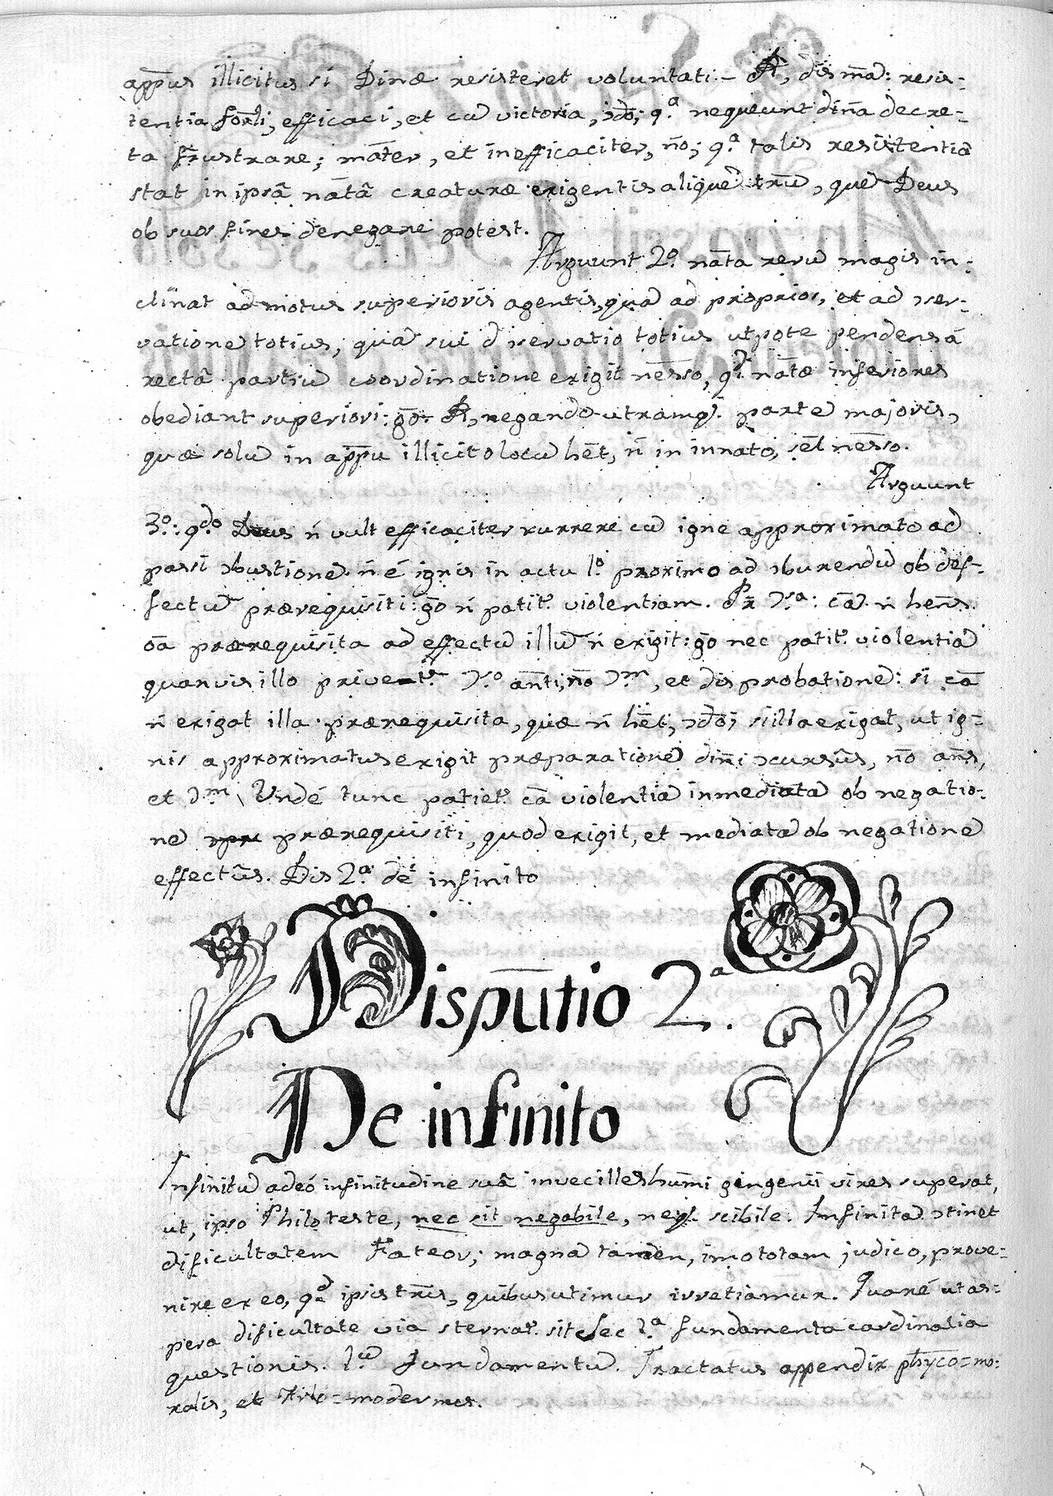 appūs illicitus si Dinæ resisteret voluntati- R, dis mā: resis-
tentia forli, efficaci, et cū victoria, ɔdo; qᵃ nequeunt dinā decre-
ta frustrare; māter, et inefficaciter, ño; qᵃ talis resistentiā
stat in ipsā nātā creaturæ exigentis aliquē trū, quē Deus
ob suos fines denegare potest.
Arguunt 2º nāta rerū magis in-
clinat ad motus superioris agentis, quā ad proprios, et ad ɔser-
vationē totius, quā sui ɔservatio totius utpote pendens ā
rectā partiū coordinatione exigit nēsso, qd natæ inferiores
obediant superiori: gō. R, negando utramq. partē majoris,
quæ solū in appū illicito locū hēt, ñ in innato, sēl nēsso.
Arguunt
3º: qdo Deus ñ vult efficaciter currere cū igne approximato ad
passi ɔbustionē ñ ē ignis in actu 1º proximo ad ɔburendū ob def-
fectū prærequisiti: gō ñ patitr violentiam. Pr ɔsᵃ: cā ñ hēns
oā prærequisita ad effectū illū ñ exigit: gō nec patitr violentiā
quanvis illo privetr ɔso ānti, ño ɔm, et dis probationē: si cā
ñ exigat illa prærequisita, quæ ñ hēt, ɔdo; si illa exigat, ut ig-
nis approximatus exigit præparationē dini ɔcursūs, ño āns,
et ɔm, Undé tunc patietr cā violentiā inmediatā ob negatio-
ne prærequisiti, quod exigit, et mediatā ob negationē
effectūs. Dis 2ᵃ de infinito
Disputio 2ᵃ.
De infinito
Infinitū adeó infinitudine suā invecilles humi gingenii vires superat,
ut, ipso Philo teste, nec sit negabile, neq. scibile. Infinitā ɔtinet
dificultatem Fateor; magna tamen, imo totam judico, prove-
nire ex eo, qd ipsis trīs, quibus utimur irretiamur. Quaré ut as-
pera dificultate via sternar. sit Sec 1ᵃ fundamenta cardinalia
questionis. 1ū Fundamentū. Tractatus appendix phyco-mo-
ralis, et Trlo-modernes.